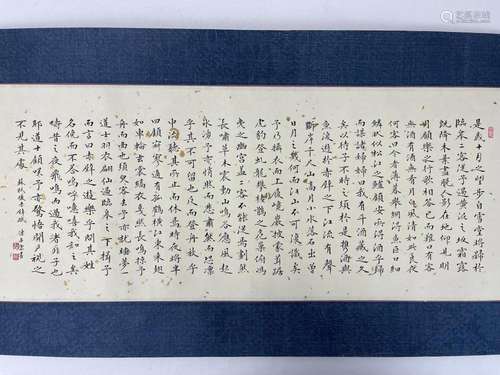 是歲十月之望步自雪堂將歸於
臨皋二客從予過黃泥之坂霜露
既降木葉盡脫人影在地仰見明
月顧而樂之行歌相答已而歎曰有客
無酒有酒無肴月白風清如此良夜
何客曰今者薄暮舉網得魚巨口細
鱗狀似松江之鱸顧安所得酒乎歸
而謀諸婦婦曰我有斗酒藏之久
矣以待子不時之須於是攜酒與
魚復遊於赤壁之下江流有聲
斷岸千尺山高月小水落石出曾
日月之幾何而江山不可復識矣
予乃攝衣而上履巉巖披蒙茸踞
虎豹登虬龍攀棲鶻之危巢俯馮
夷之幽宮蓋二客不能從焉劃然
長嘯草木震動山鳴谷應風起
水涌予亦悄然而悲肅然而恐凜
乎其不可留也反而登舟放乎
中流聽其所止而休焉時夜將半
四顧寂寥適有孤鶴橫江東來翅
如車輪玄裳縞衣戛然長鳴掠予
舟而西也須臾客去予亦就睡夢
道士羽衣翩躚過臨皋之下揖予
而言曰赤壁之遊樂乎問其姓
名俛而不答嗚呼噫嘻我知之矣
疇昔之夜飛鳴而過我者非子也
邪道士顧笑予亦驚悟開戶視之
不見其處 蘇軾後赤壁賦